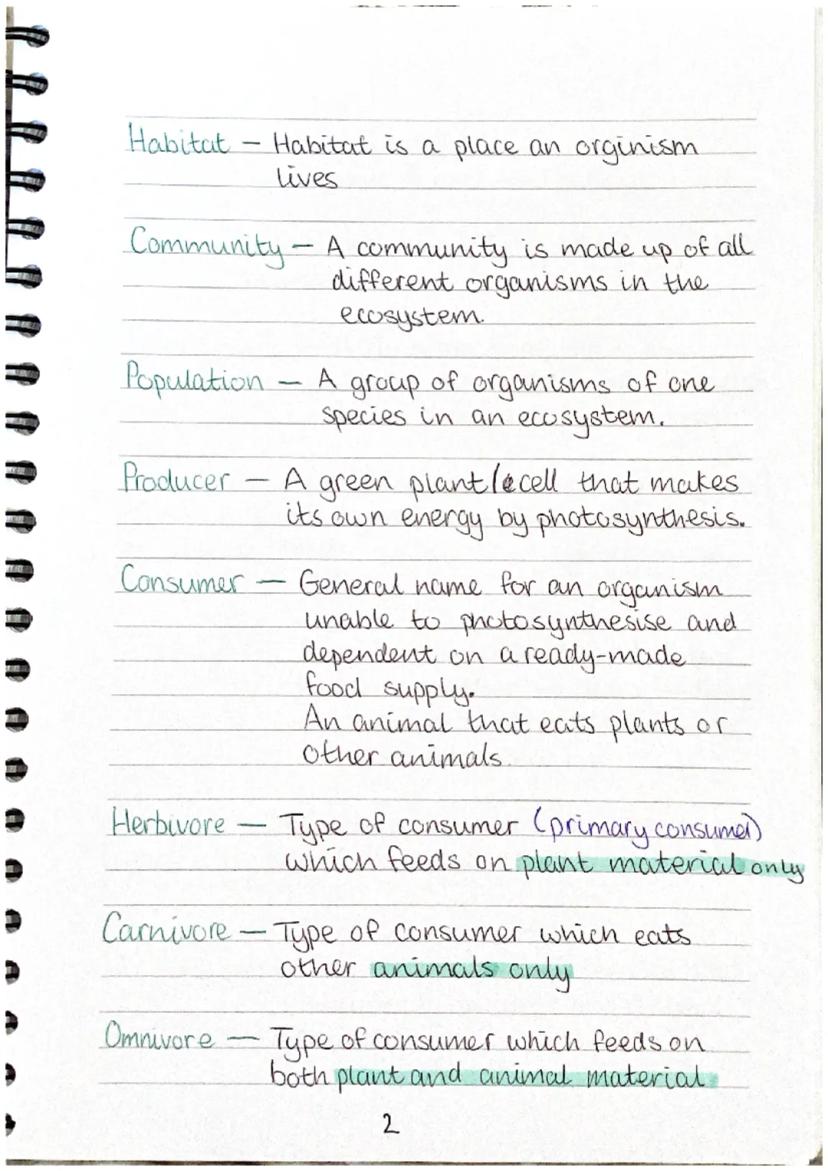 Habitat — Habitat is a place an orginism
lives
Community — A community is made up of all
different organisms in the
ecosystem.
Population — A group of organisms of one
species in an ecosystem.
Producer — A green plant/cell that makes
its own energy by photosynthesis.
Consumer — General name for an organism
unable to photosynthesise and
dependent on a ready-made
food supply.
An animal that eats plants or
other animals.
Herbivore — Type of consumer (primary consumer)
which feeds on plant material only
Carnivore — Type of consumer which eats
other animals only
Omnivore — Type of consumer which feeds on
both plant and animal material
2